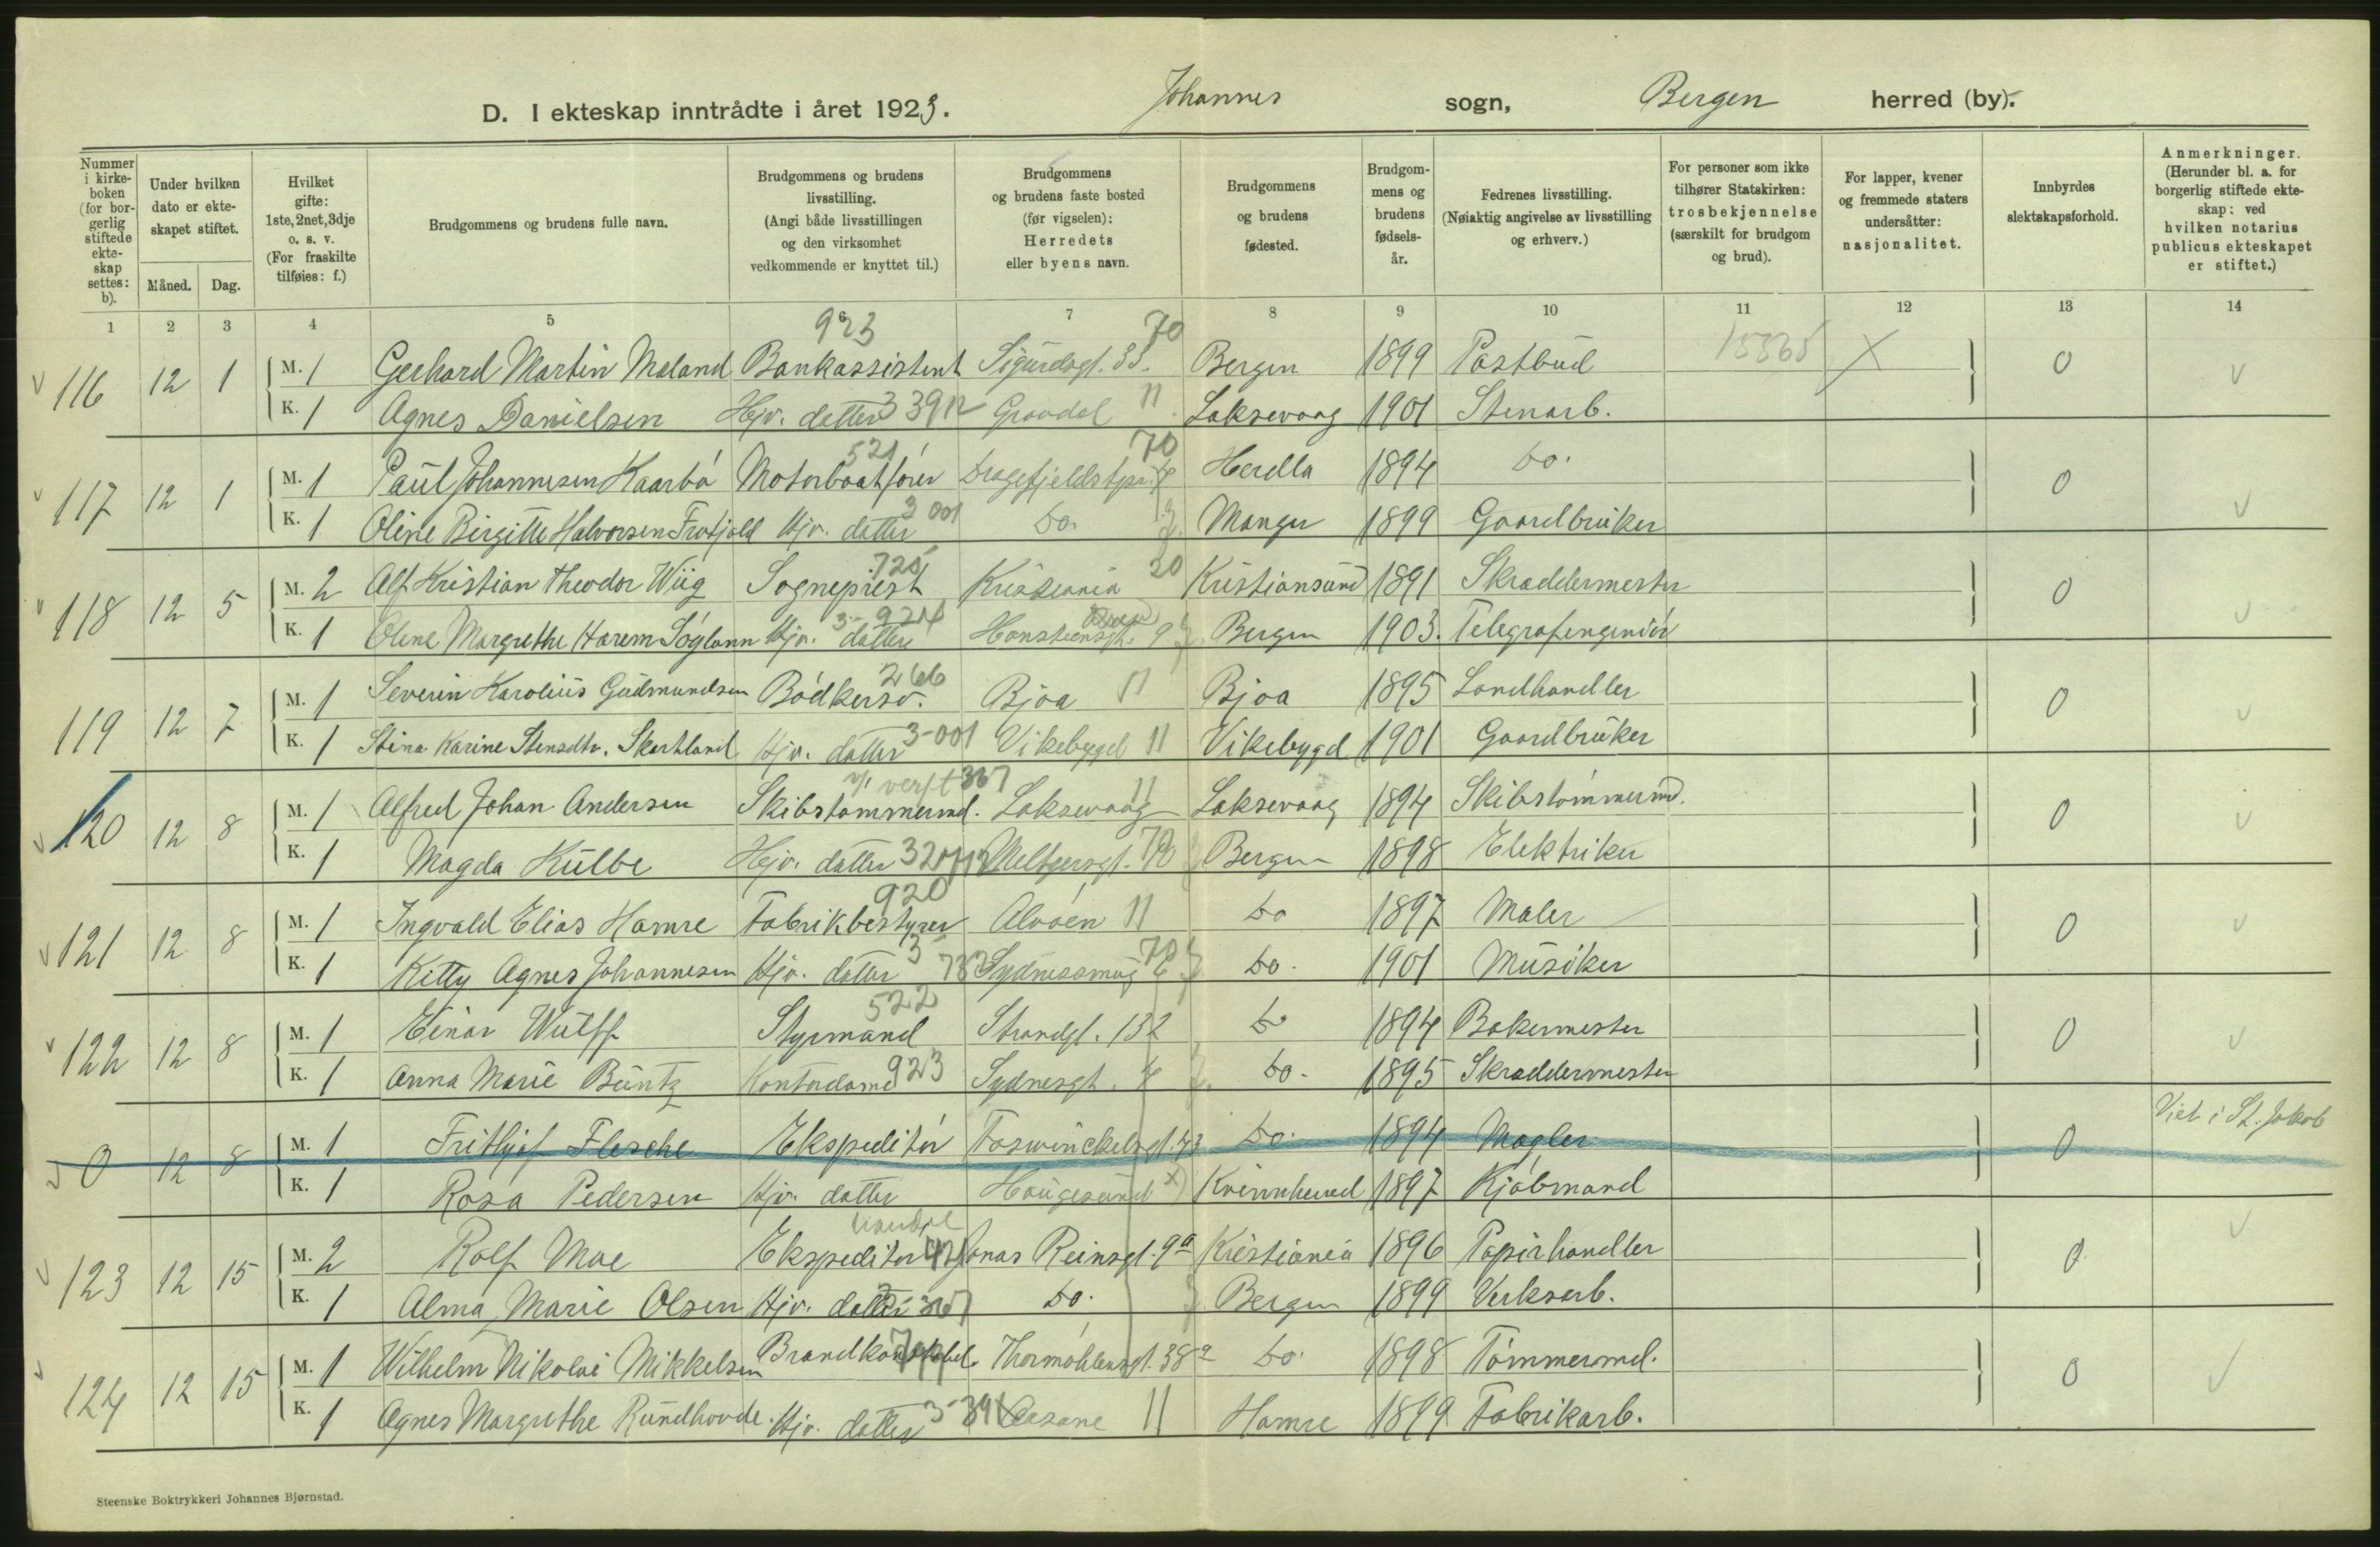 D. I ekteskap inntrådte i året 1923. Johannes sogn, Bergen herred (by).
Nummer i kirke-boken (for bor-gerlig stiftede ekte-skap settes: b).
Under hvilken dato er ekte-skapet stiftet.
Måned. Dag.
Hvilket gifte: 1ste, 2net, 3dje o. s. v. (For fraskilte tilføies: f.)
Brudgommens og brudens fulle navn.
Brudgommens og brudens livsstilling. (Angi både livsstillingen og den virksomhet vedkommende er knyttet til.)
Brudgommens og brudens faste bosted (før vigselen): Herredets eller byens navn.
Brudgommens og brudens fødested.
Brudgom-mens og brudens fødsels-år.
Fedrenes livsstilling. (Nøiaktig angivelse av livsstilling og erhverv.)
For personer som ikke tilhører Statskirken: trosbekjennelse (særskilt for brudgom og brud).
For lapper, kvener og fremmede staters undersåtter: nasjonalitet.
Innbyrdes slektskapsforhold.
Anmerkninger. (Herunder bl. a. for borgerlig stiftede ekte-skap: ved hvilken notarius publicus ekteskapet er stiftet.)
1 2 3 4 5 6 7 8 9 10 11 12 13 14
923 70
116 12 1 M. 1 Gerhard Martin Maland Bankassistent Sigurdsgt. 33. Bergen 1899 Postbud X 0 v
K. 1 Agnes Danielsen Hjv. datter 3 391 Gravdal 11 Laksevaag 1901 Stenarb.
521 70
117 12 1 M. 1 Paul Johannesen Kaarbö Motorbaatförer Herdla 1894 Do. 0 v
K. 1 Oline Birgitte Halvorsen Hjv. datter 3 001 Do. Manger 1899 Gaardbruker
725 20
118 12 5 M. 2 Alf Kristian Theodor Wiig Sogneprest Kristiania Kristiansund 1891 Skreddermester 0 v
K. 1 Olene Margrethe Harem Hjv. datter 3-924 Hansteensgt. 9 Bergen 1903. Telegrafingeniör
266
119 12 7 M. 1 Severin Karolius Gudmundsen Bödkersv. Bjoa 11 Bjoa 1895 Landhandler 0 v
K. 1 Stina Karine Stensdtr. Skartland Hjv. datter 3-001 Vikebygd 11 Vikebygd 1901 Gaardbruker
v/ verft 367 11
120 12 8 M. 1 Alfred Johan Andersen Skibstömmermd. Laksevaag Laksevaag 1894 Skibstömmermd. 0 v
K. 1 Magda Külbe Hjv. datter Meltzersgt. Bergen 1898 Elektriker
920
121 12 8 M. 1 Ingvald Elias Hamre Fabrikbestyrer Alvöen 11 Do 1897 Maler 0 v
K. 1 Kitty Agnes Johannesen Hjv. datter 3 Sydnessmug 70 Do. 1901 Musiker
522
122 12 8 M. 1 Einar Wulff Styrmand Strandgt. 132 Do 1894 Bakermester 0 v
K. 1 Anna Marie Büntz Kontordame 923 Sydnesgt. Do. 1895 Skreddermester
Viet i St. Jakob
0 12 8 M. 1 Frithjof Flesche Ekspeditör Foswinckelsgt. 43 Do. 1894 Mægler 0
K. 1 Rosa Pedersen Hjv. datter Haugesund Kvinnherred 1897 Kjöbmand
handel
123 12 15 M. 2 Rolf Moe Ekspeditör Jonas Reinsgt. 9a Kristiania 1896 Papirhandler 0 v
K. 1 Alma Marie Olsen Hjv. datter Do. Bergen 1899 Verksarb.
124 12 15 M. 1 Wilhelm Nikolai Mikkelsen Brandkonstabel. Thormöhlensgt. 38a Do. 1898 Tömmermd. 0 v
K. 1 Agnes Margrethe Rundhovde. Hjv. datter 3-391 Aasane 11 Hamre 1899 Fabrikarb.
Steenske Boktrykkeri Johannes Bjørnstad.